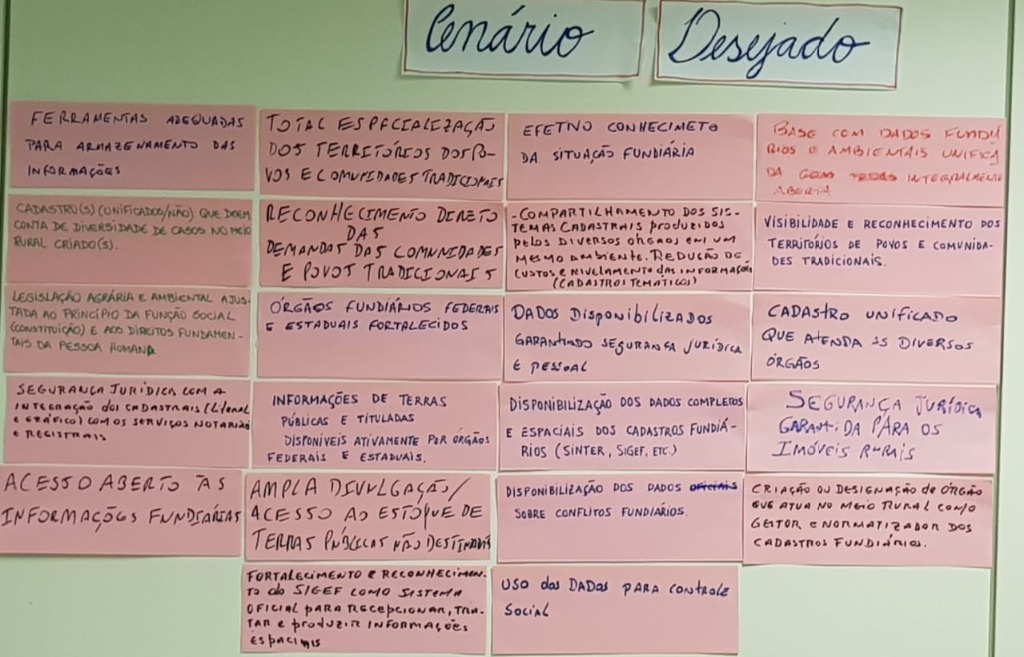 Cenário Desejado
FERRAMENTAS ADEQUADAS
PARA ARMAZENAMENTO DAS
INFORMAÇÕES
TOTAL ESPACIALIZAÇÃO
DOS TERRITÓRIOS DOS PO-
VOS E COMUNIDADES TRADICIONAIS
EFETIVO CONHECIMETO
DA SITUAÇÃO FUNDIÁRIA
BASE COM DADOS FUNDIÁ
RIOS E AMBIENTAIS UNIFICA
DA INTEGRALMENTE
ABERTA
CADASTRO(S) (UNIFICADOS/NÃO) QUE DEEM
CONTA DE DIVERSIDADE DE CASOS NO MEIO
RURAL CRIADO(S).
RECONHECIMENTO DIRETO
DAS
DEMANDAS DAS COMUNIDADES
E POVOS TRADICIONAIS
- COMPARTILHAMENTO DOS SIS-
TEMAS CADASTRAIS PRODUZIDOS
PELOS DIVERSOS ÓRGÃOS EM UM
MESMO AMBIENTE. REDUÇÃO DE
CUSTOS E NIVELAMENTO DAS INFORMAÇÕES
(CADASTROS TEMÁTICOS)
VISIBILIDADE E RECONHECIMENTO DOS
TERRITÓRIOS DE POVOS E COMUNIDA-
DES TRADICIONAIS.
LEGISLAÇÃO AGRÁRIA E AMBIENTAL AJUS-
TADA AO PRINCÍPIO DA FUNÇÃO SOCIAL
(CONSTITUIÇÃO) E AOS DIREITOS FUNDAMEN-
TAIS DA PESSOA HUMANA
ÓRGÃOS FUNDIÁRIOS FEDERAIS
E ESTADUAIS FORTALECIDOS
DADOS DISPONIBILIZADOS
GARANTINDO SEGURANÇA JURÍDICA
E PESSOAL
CADASTRO UNIFICADO
QUE ATENDA ÀS DIVERSOS
ÓRGÃOS
SEGURANÇA JURÍDICA COM A
INTEGRAÇÃO dos CADASTRAIS (Literal
e gráfico) COM OS SERVIÇOS NOTARIAIS
E REGISTRAIS
INFORMAÇÕES DE TERRAS
PÚBLICAS E TITULADAS
DISPONÍVEIS ATIVAMENTE POR ÓRGÃOS
FEDERAIS E ESTADUAIS.
DISPONIBILIZAÇÃO DOS DADOS COMPLETOS
E ESPACIAIS DOS CADASTROS FUNDIÁ-
RIOS (SINTER, SIGEF, ETC.)
SEGURANÇA JURÍDICA
GARANTIDA PARA OS
IMÓVEIS RURAIS
ACESSO ABERTO ÀS
INFORMAÇÕES FUNDIÁRIAS
AMPLA DIVULGAÇÃO/
ACESSO AO ESTOQUE DE
TERRAS PÚBLICAS NÃO DESTINADAS
DISPONIBILIZAÇÃO DOS DADOS oficiais
SOBRE CONFLITOS FUNDIÁRIOS.
CRIAÇÃO OU DESIGNAÇÃO de ÓRGÃO
QUE ATUA NO MEIO RURAL COMO
GESTOR e NORMATIZADOR DOS
CADASTROS FUNDIÁRIOS.
FORTALECIMENTO e RECONHECIMEN-
TO do SIGEF COMO SISTEMA
OFICIAL PARA RECEPCIONAR, TRA-
TAR e PRODUZIR INFORMAÇÕES
ESPACIAIS
USO dos DADOS PARA CONTROLE
SOCIAL